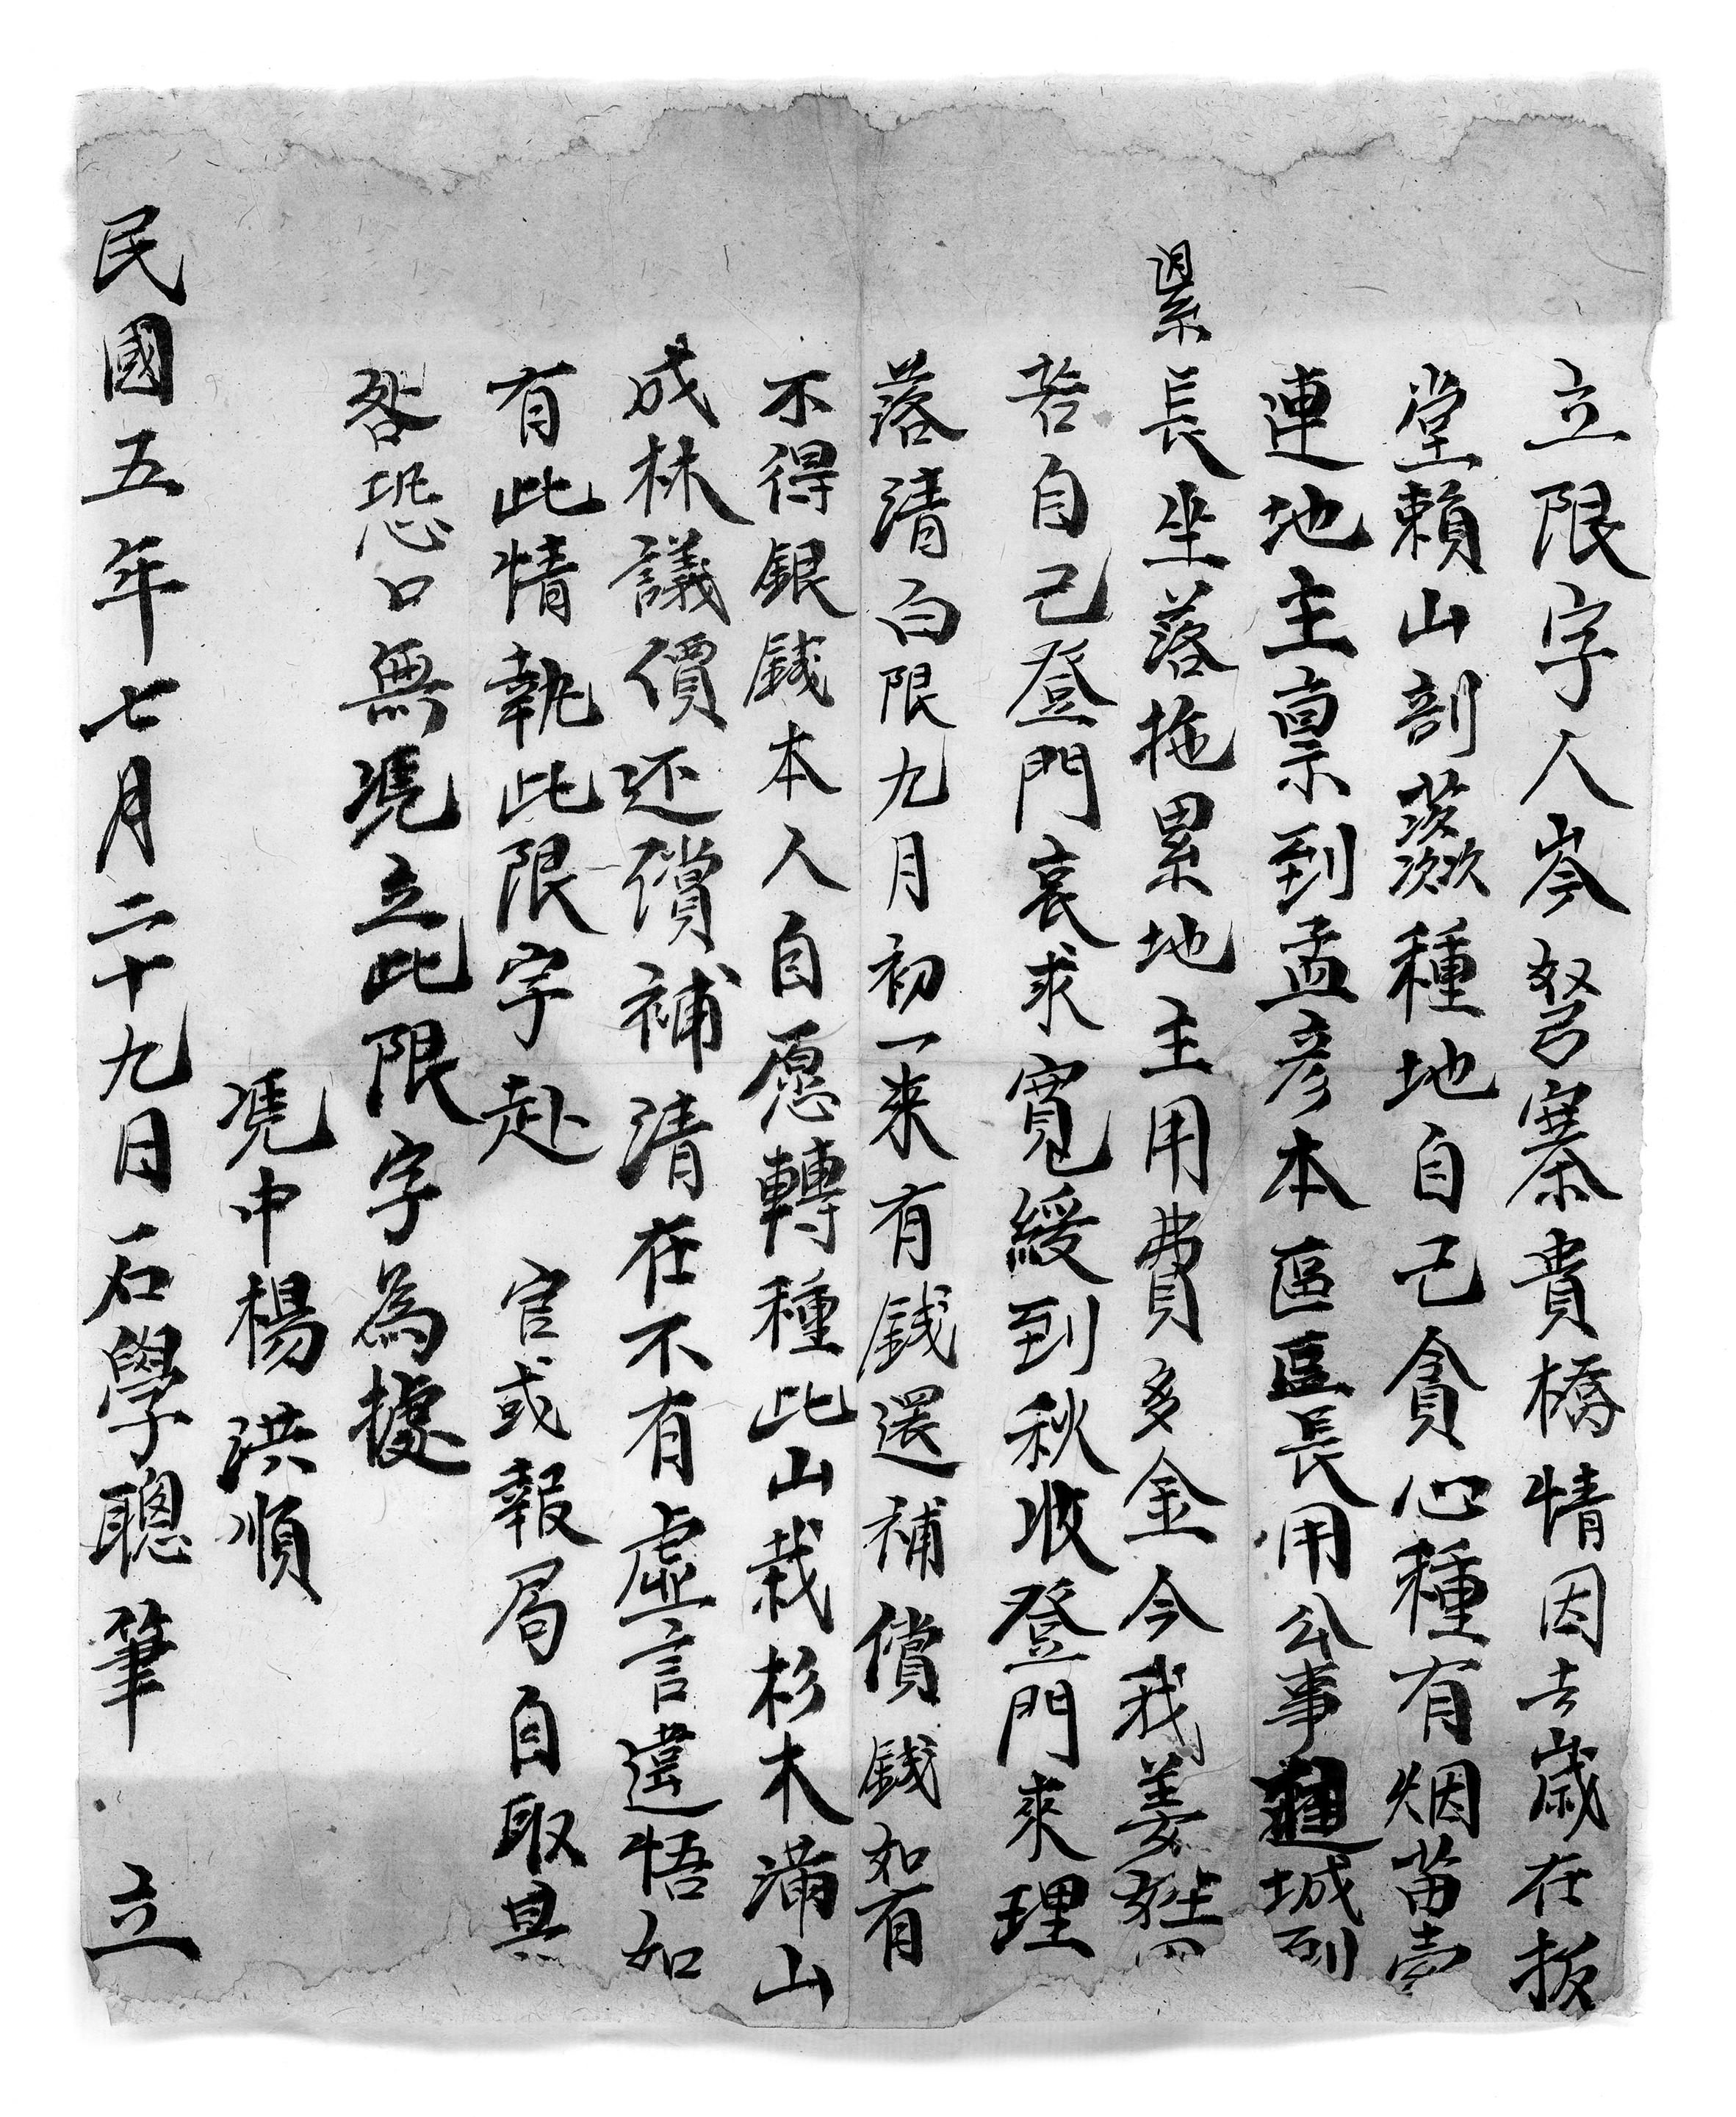 立限字人岑努寨貴橋情因去歲在扳
堂賴山剖蒸種地自己貪心種有烟苗壹
連地主禀到孟彥本區區長用公事城到
累長坐落拖累地主用費多金今我姜姓四
若自己登門哀求寬緩到秋收登門來理
落清白限九月初一來有錢還補償錢如有
不得銀錢本人自愿轉種此山栽杉木滿山
成林議價还償補清在不有虛言違悟如
有此情執此限字赴 官或報局自取其
咎恐口無凴立此限字為據
凴中楊洪順
民國五年七月二十九日石學聰筆 立